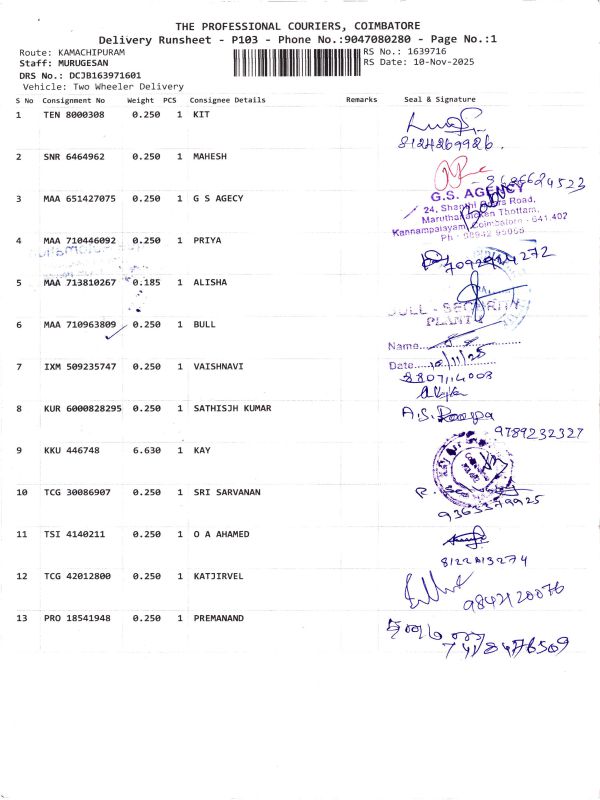 THE PROFESSIONAL COURIERS, COIMBATORE
Delivery Runsheet - P103 - Phone No.:9047080280 - Page No.:1
Route: KAMACHIPURAM
RS No.: 1639716
Staff: MURUGESAN
RS Date: 10-Nov-2025
DRS No.: DCJB163971601
Vehicle: Two Wheeler Delivery
S No Consignment No Weight PCS Consignee Details Remarks Seal & Signature
1 TEN 8000308 0.250 1 KIT
8124269926
2 SNR 6464962 0.250 1 MAHESH
3 MAA 651427075 0.250 1 G S AGECY
G.S. AGENCY
24, Road,
Maruthanaicken Thottam,
Kannampalayam, Coimbatore - 641 402
4 MAA 710446092 0.250 1 PRIYA
5 MAA 713810267 0.185 1 ALISHA
6 MAA 710963809 0.250 1 BULL
BULL - SECURITY
PLANT
Name
Date 10/11/25
7 IXM 509235747 0.250 1 VAISHNAVI
8807114003
8 KUR 6000828295 0.250 1 SATHISJH KUMAR
A.S.
9789232327
9 KKU 446748 6.630 1 KAY
10 TCG 30086907 0.250 1 SRI SARVANAN
9363379925
11 TSI 4140211 0.250 1 O A AHAMED
8122813274
12 TCG 42012800 0.250 1 KATJIRVEL
9842120076
13 PRO 18541948 0.250 1 PREMANAND